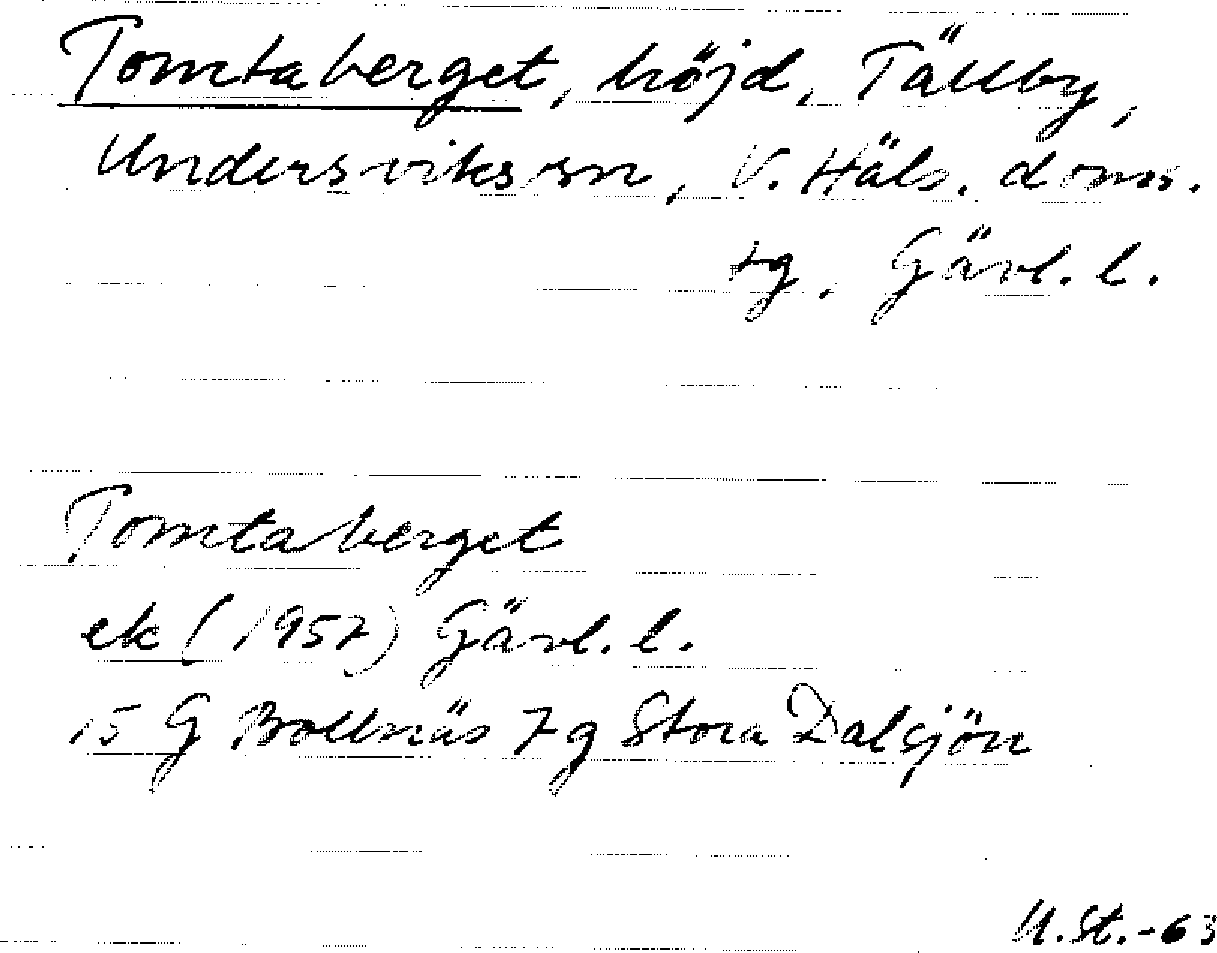 Tomtaberget, höjd, Tällby,
Undersviks sn, V. Häls. doms.
tg, Gävl. l.
Tomtaberget
ek (1957) Gävl. l.
15 G Bollnäs 7 g Stora Dalsjön
U.St.-63